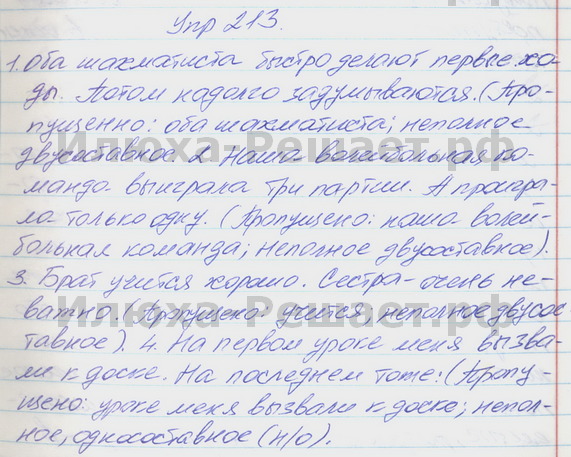 Упр 213.
1. Оба шахматиста быстро делают первые хо-
ды. Потом надолго задумываются. (Про-
пущенно: оба шахматиста; неполное
Илюха-Решает.рф
двусоставное 2. Наша волейбольная ко-
манда выиграла три партии. А проигра-
ла только одну. (Пропущено: наша волей-
больная команда; неполное двусоставное).
3. Брат учится хорошо. Сестра - очень не-
важно. (Пропущено: учится; неполное двусос
Илюха-Решает.рф
тавное). 4. На первом уроке меня вызва-
ли к доске. На последнем тоже: (Пропу-
щено: уроке меня вызвали к доске; непол-
ное, односоставное (н/о).